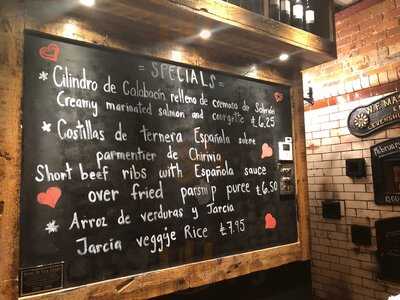 = SPECIALS =
* Cilindro de Calabacin relleno de cremoso de Salmón
Creamy marinated salmon and courgette £6.25
* Costillas de ternera Española sobre
parmentier de Chirivia
Short beef ribs with Española sauce
over fried parsnip puree £6.50
* Arroz de verduras y Jarcia
Jarcia veggie Rice £7.95
W.F. MA
LEVENSHU
February